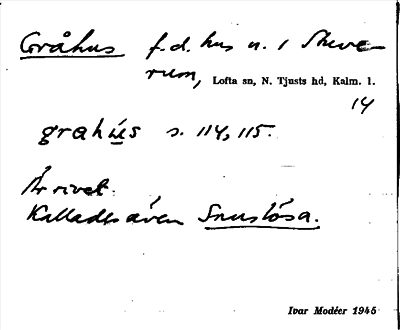 Gråhus f.d. hus u. 1 Skeve-
rum, Lofta sn, N. Tjusts hd, Kalm. l.
14
grahu̲s s. 114, 115.
Är rivet.
Kallades även Snuslösa.
Ivar Modéer 1945